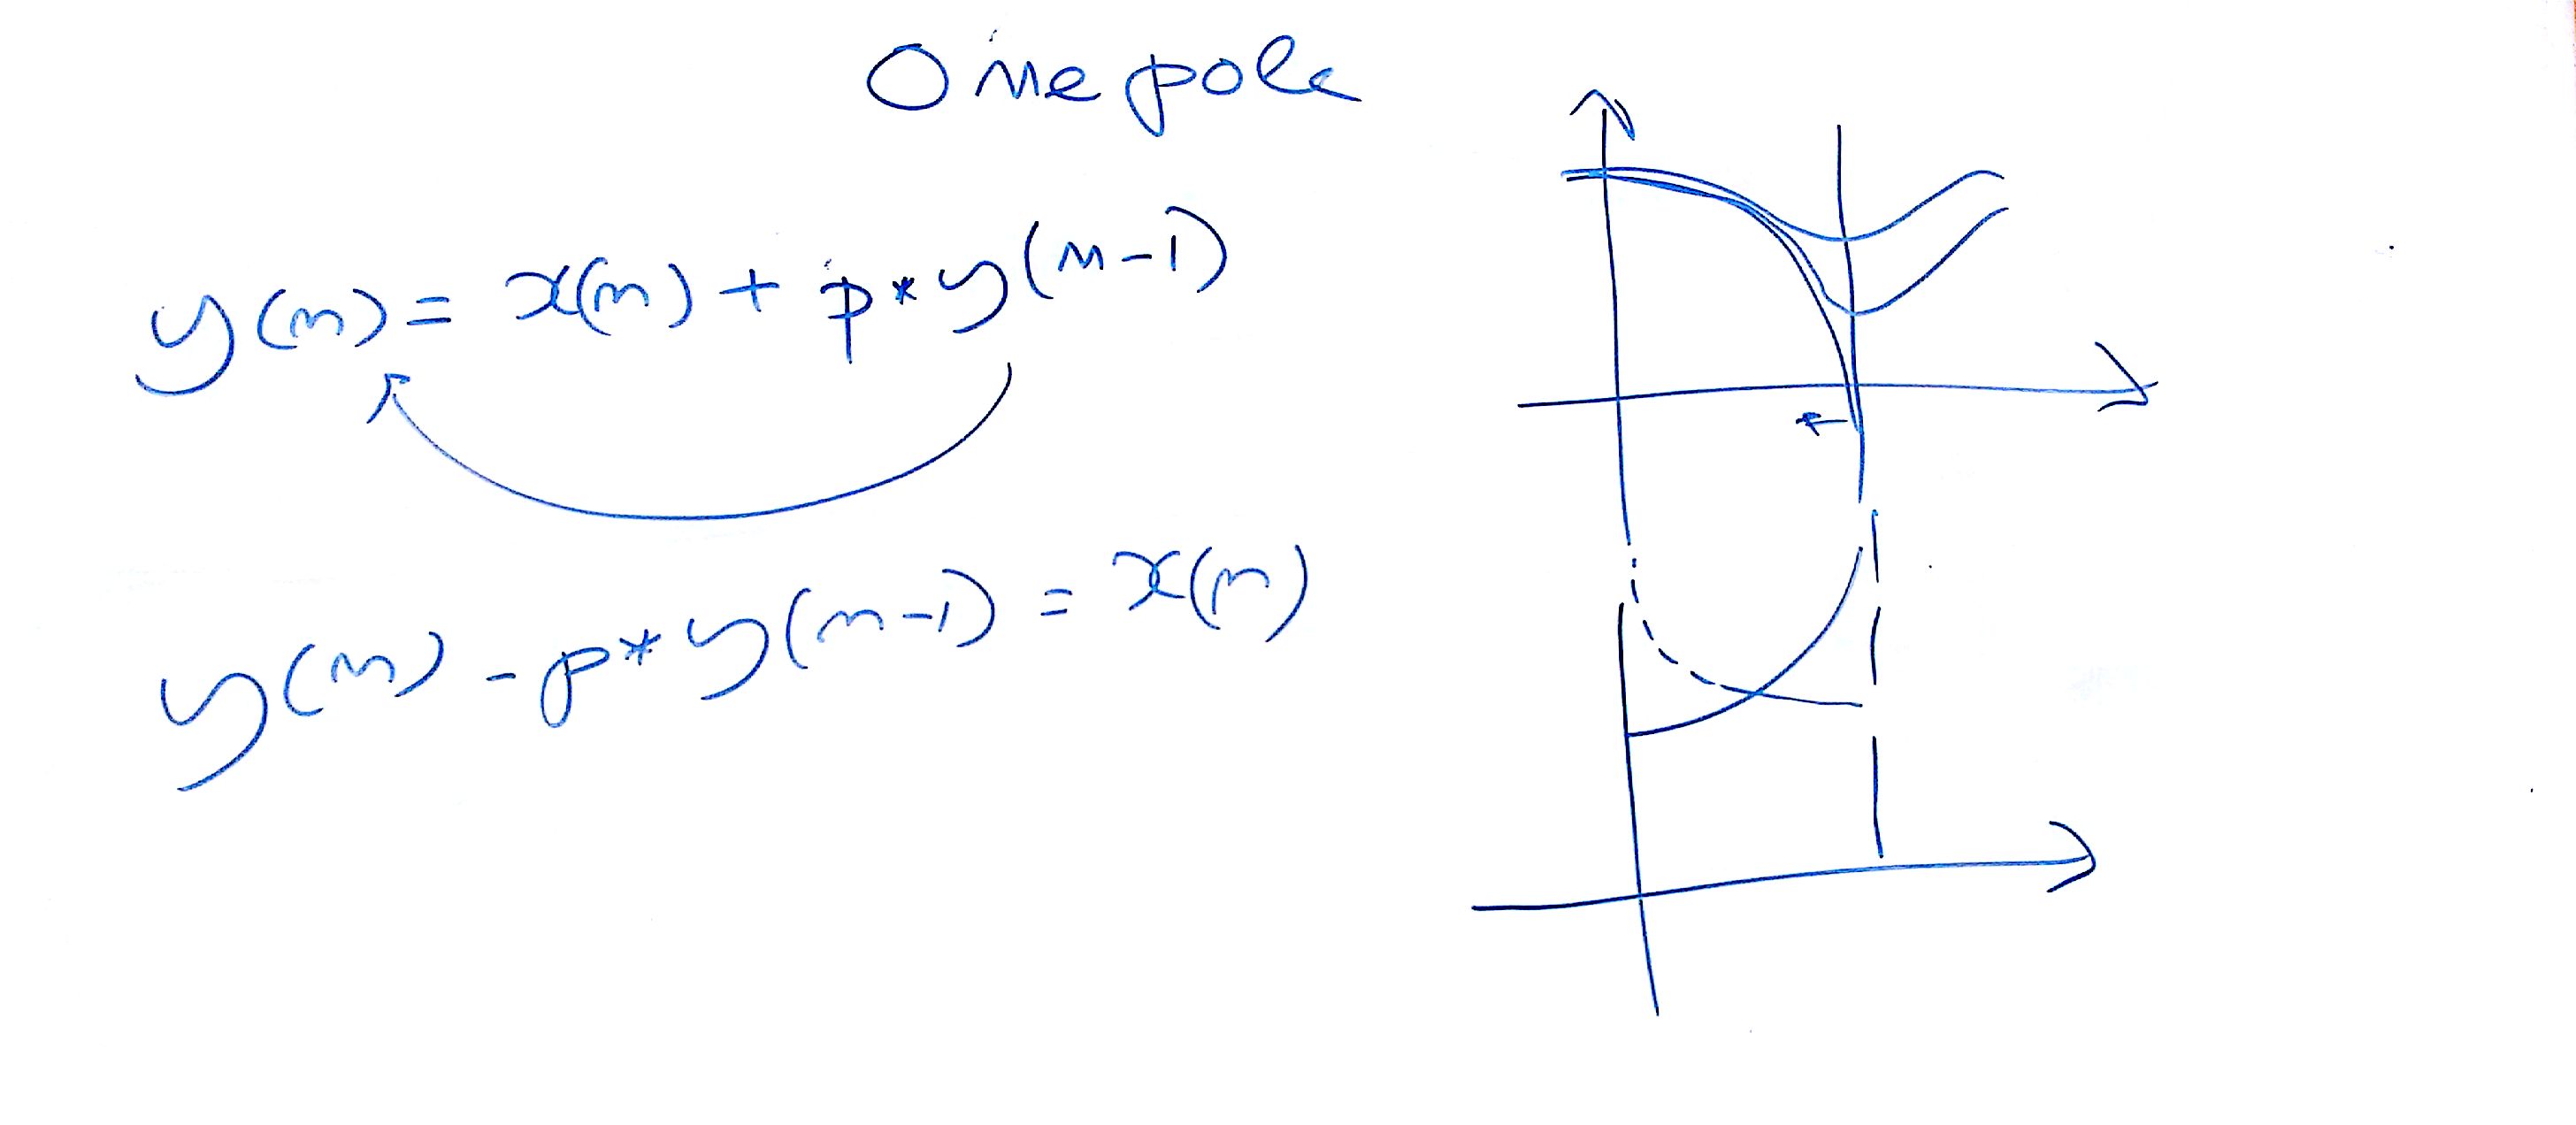 One pole
y(n) = x(n) + p * y(n-1)
y(n) - p * y(n-1) = x(n)